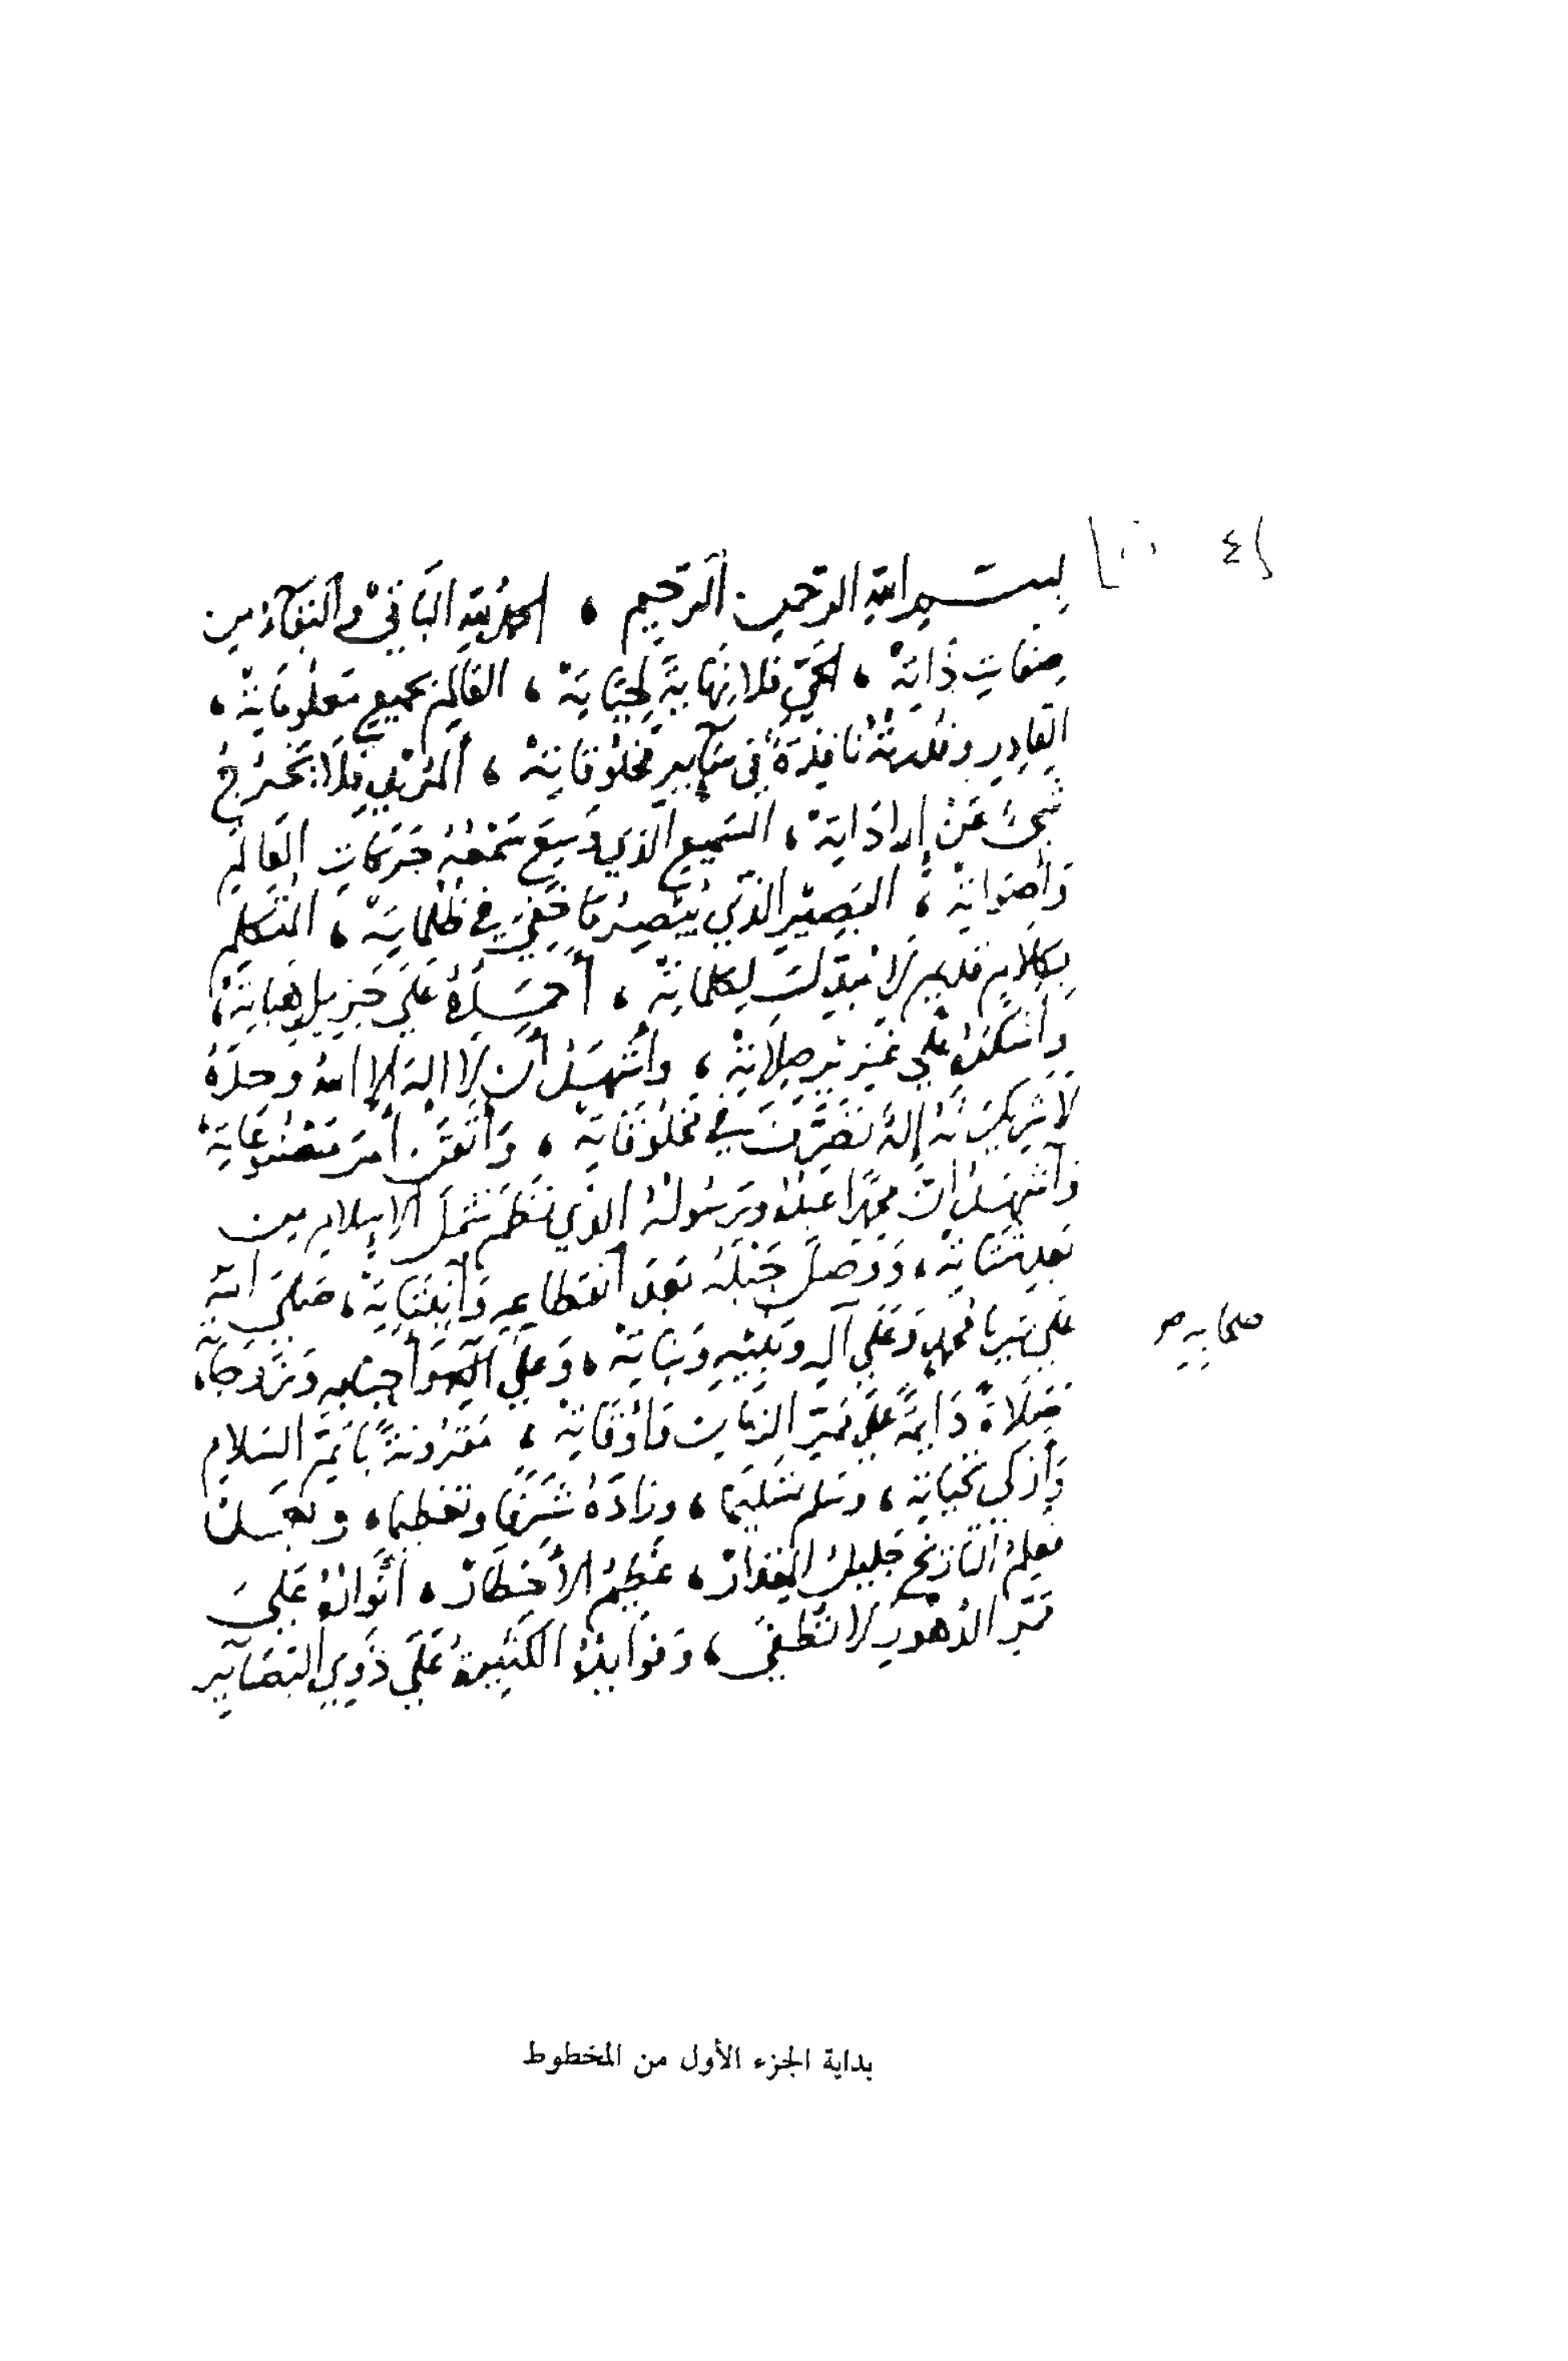 بسم الله الرحمن الرحيم ، الحمد لله الباقي والبقاء من
صفات ذاته ، الحي فلا نهاية لحياته ، العالم بجميع معلوماته ،
القادر وقدرته نافذة في سآير مخلوقاته ، المريد فلا يخرج
شيء عن إراداته ، السميع الذي وسع سمعه حركات العالم
وأصواته ، البصير الذي يبصر ما خفي في ظلماته ، المتكلم
بكلام قديم لا مبدل لكلماته ، أحمده على جزيل هباته ،
وأشكره على غزير صلاته ، وأشهد أن لا اله إلا الله وحده
لا شريك له إله تصرف في مخلوقاته ، وأتقن أمر مصنوعاته
وأشهد ان محمدا عبده ورسوله الذي نظم شمل الإسلام من
بعد شتاته ، ووصل حبله بعد انقطاعه وانبتاته ، صلى الله
على سيدنا محمد وعلى آله وبنيه وبناته ، وعلى وأحبابه وزوجاته
صحابه ص
صلاة دايمة على ممر الزمان وأوقاته ، مقرونة بأتم السلام
وأزكي تحياته ، وسلم تسليما ، وزاده شرفا وتعظيما ، وبعد
فعلم التاريخ جليل المقدار ، عظيم الأخطار ، أنواره على
ممر الدهور لا تطفي ، وفوايده الكثيرة على ذوي البصآير
بداية الجزء الأول من المخطوط